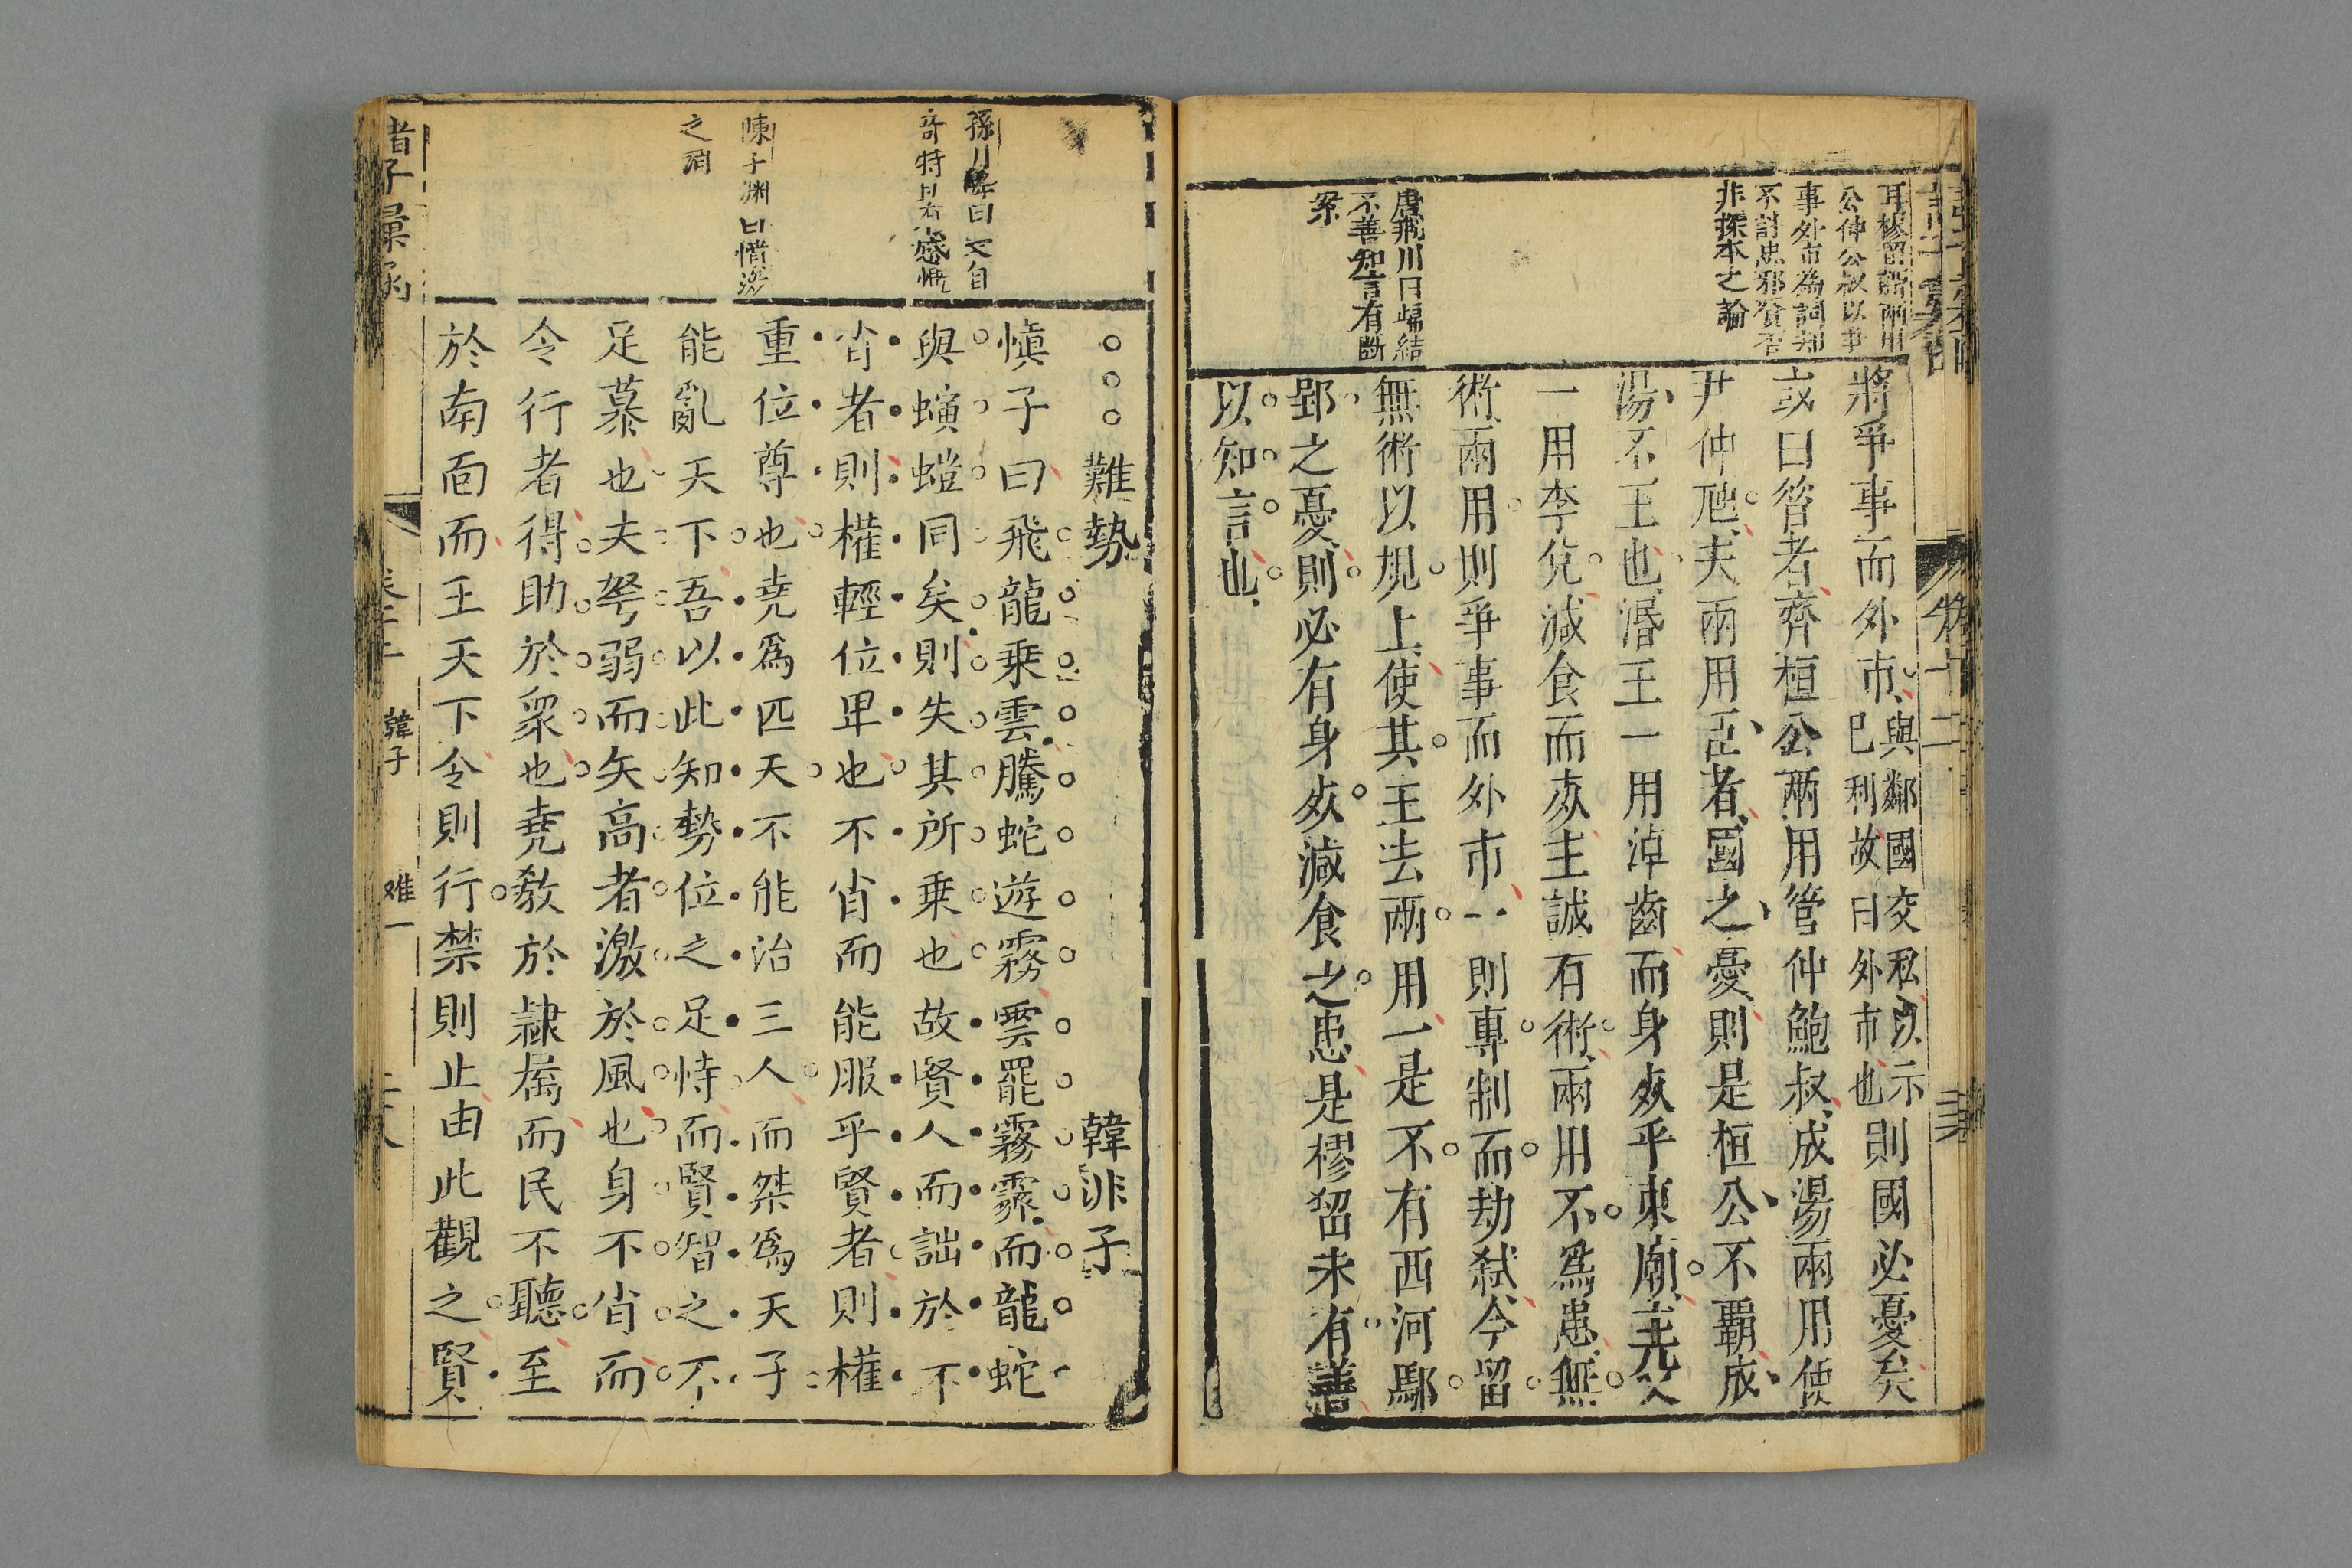 耳樛留謂兩用
公仲公叔以爭
事外市為詞却
不討忠邪賢否
非探本之論
唐荊川曰歸結
不善知言有斷
案
將爭事而外市與鄰國交私以示己利故曰外市也則國必憂矣
或曰昝者齊桓公兩用管仲鮑叔成湯兩用伊
尹仲虺夫兩用臣者國之憂則是桓公不霸成
湯不王也湣王一用淖齒而身死乎東廟主父
一用李兌減食而死主誠有術兩用不爲患無
術兩用則爭事而外市一則專制而劫弒今留
無術以規上使其主去兩用一是不有西河鄢
郢之憂則必有身死減食之患是樛留未有善
以知言也
難勢 韓非子
孫月峰曰文自
奇特且有感慨
陳子淵曰惜勢
之詞
慎子曰飛龍乗雲騰蛇遊霧雲罷霧霽而龍蛇
與螾螘同矣則失其所乗也故賢人而詘於不
肖者則權輕位卑也不肖而能服乎賢者則權
重位尊也堯爲匹夫不能治三人而桀爲天子
能亂天下吾以此知勢位之足恃而賢智之不
足慕也夫弩弱而矢高者激於風也身不肖而
令行者得助於眾也堯教於隷屬而民不聽至
於南面而王天下令則行禁則止由此觀之賢
諸子彙函
韓子
难一